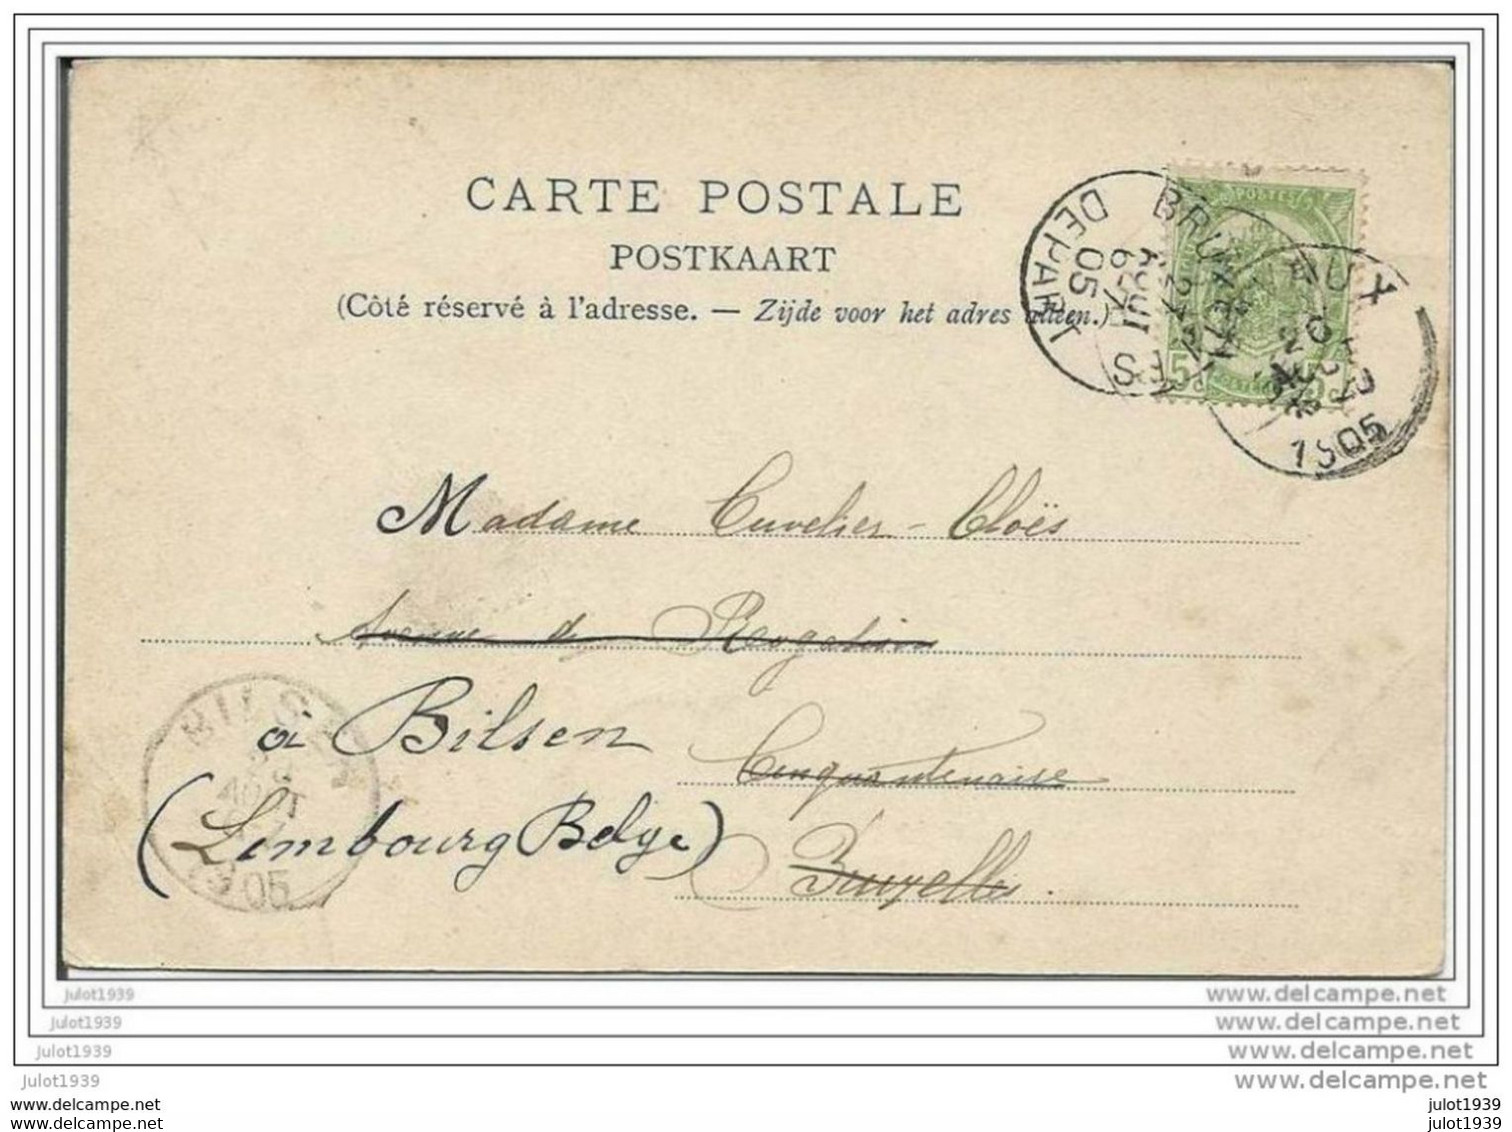 CARTE POSTALE
POSTKAART
(Côté réservé à l'adresse. — Zijde voor het adres alleen.)
POSTES
5c 5c
BRUXELLES
DEPART
AOUT
05
1905
Madame Cuvelier - Cloës
Avenue de
à Bilsen
Cinquantenaire
(Limbourg Belge)
Bruxelles.
BILSEN
AOUT
1905
julot1939
www.delcampe.net
julot1939
www.delcampe.net
julot1939
www.delcampe.net
julot1939
www.delcampe.net
www.delcampe.net
julot1939
www.delcampe.net
julot1939